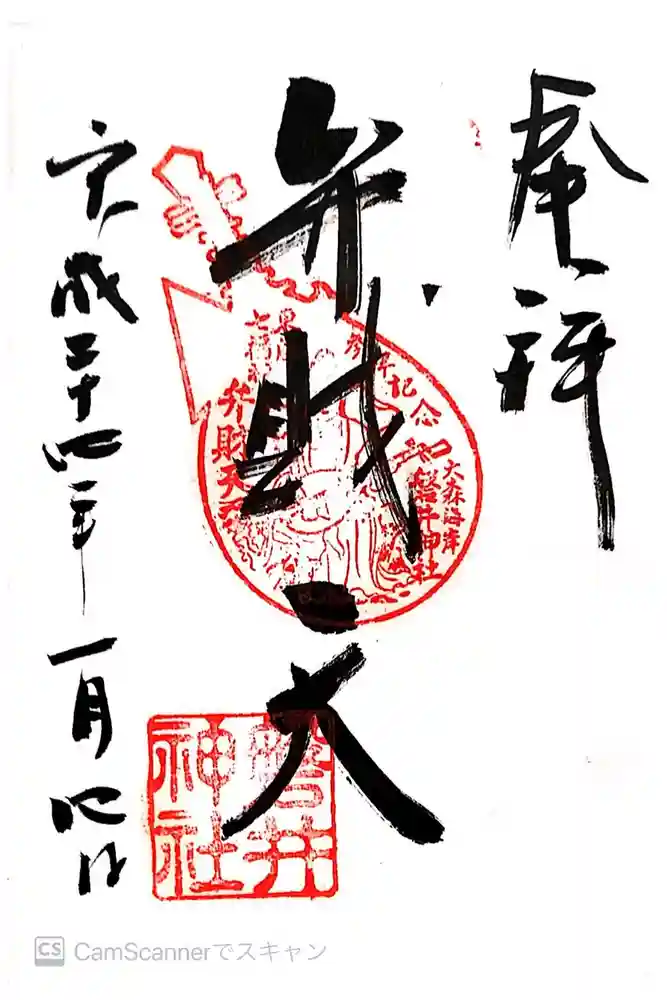 奉拝
弁財天
参拝記念
大森海岸
磐井神社
東海
七福神
弁財天
磐井
神社
平成二十四年一月四日
CamScannerでスキャン